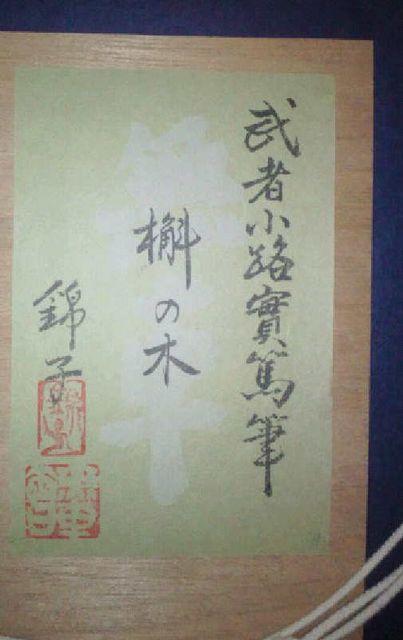 武者小路實篤筆
槲の木
錦子